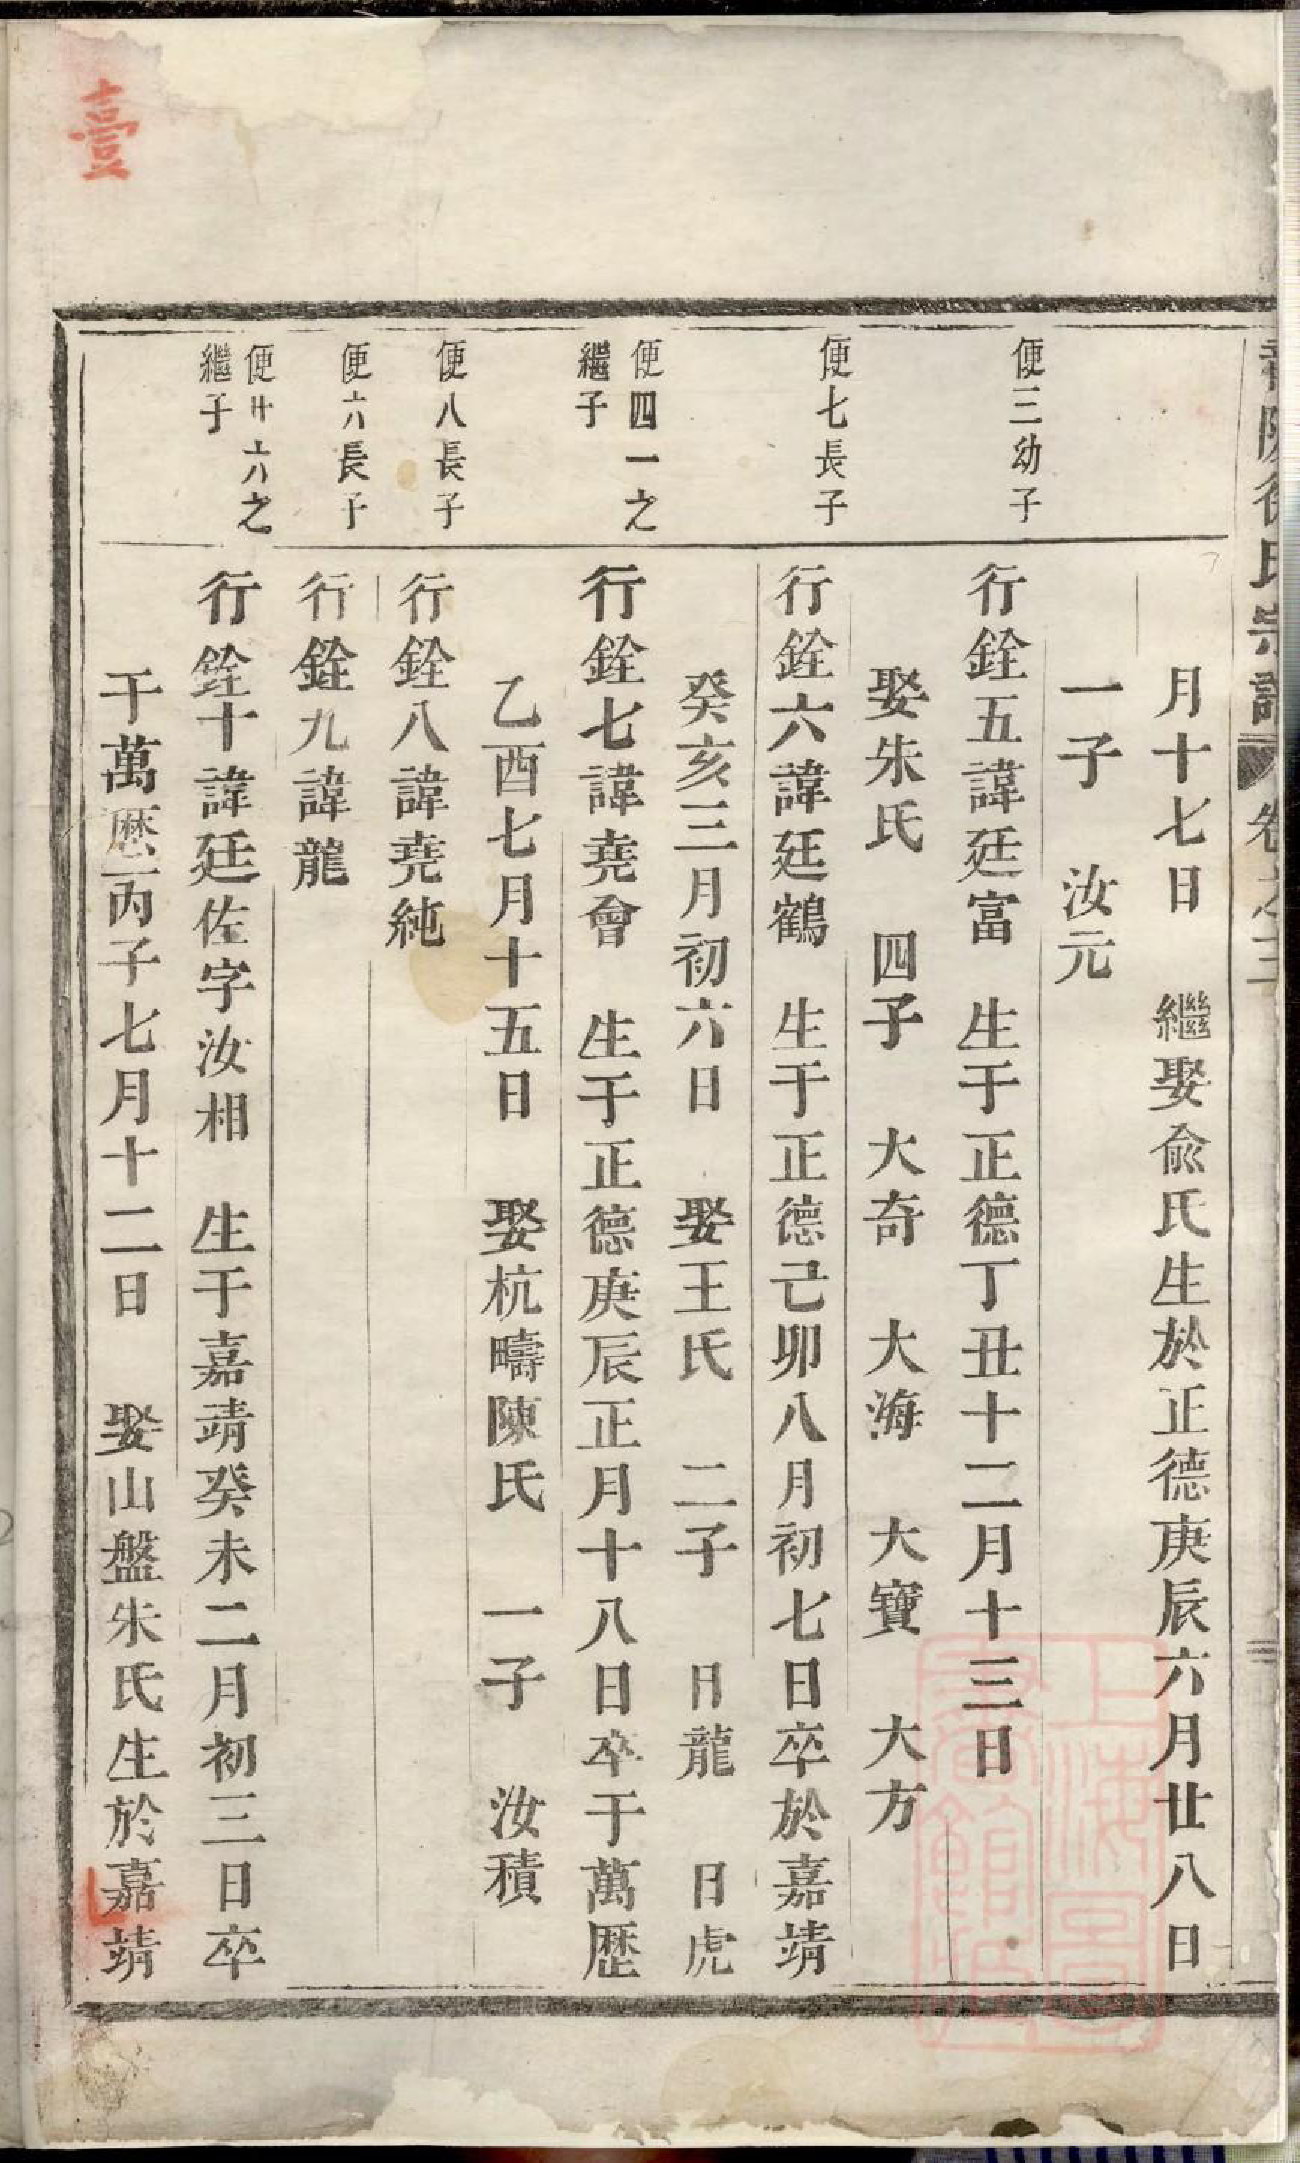 徐氏宗譜 卷之三
月十七日 繼娶兪氏生於正德庚辰六月廿八日
一子 汝元
便三幼子
行銓五諱廷富 生于正德丁丑十二月十三日
娶朱氏 四子 大奇 大海 大寶 大方
便七長子
行銓六諱廷鶴 生于正德己卯八月初七日卒於嘉靖
癸亥三月初六日 娶王氏 二子 日龍 日虎
便四一之
繼子
行銓七諱堯會 生于正德庚辰正月十八日卒于萬歷
乙酉七月十五日 娶杭疇陳氏 一子 汝積
便八長子
行銓八諱堯純
便六長子
行銓九諱龍
便廾六之
繼子
行銓十諱廷佐字汝相 生于嘉靖癸未二月初三日卒
于萬歷丙子七月十二日 娶山盤朱氏生於嘉靖
壹
上海圖書館藏